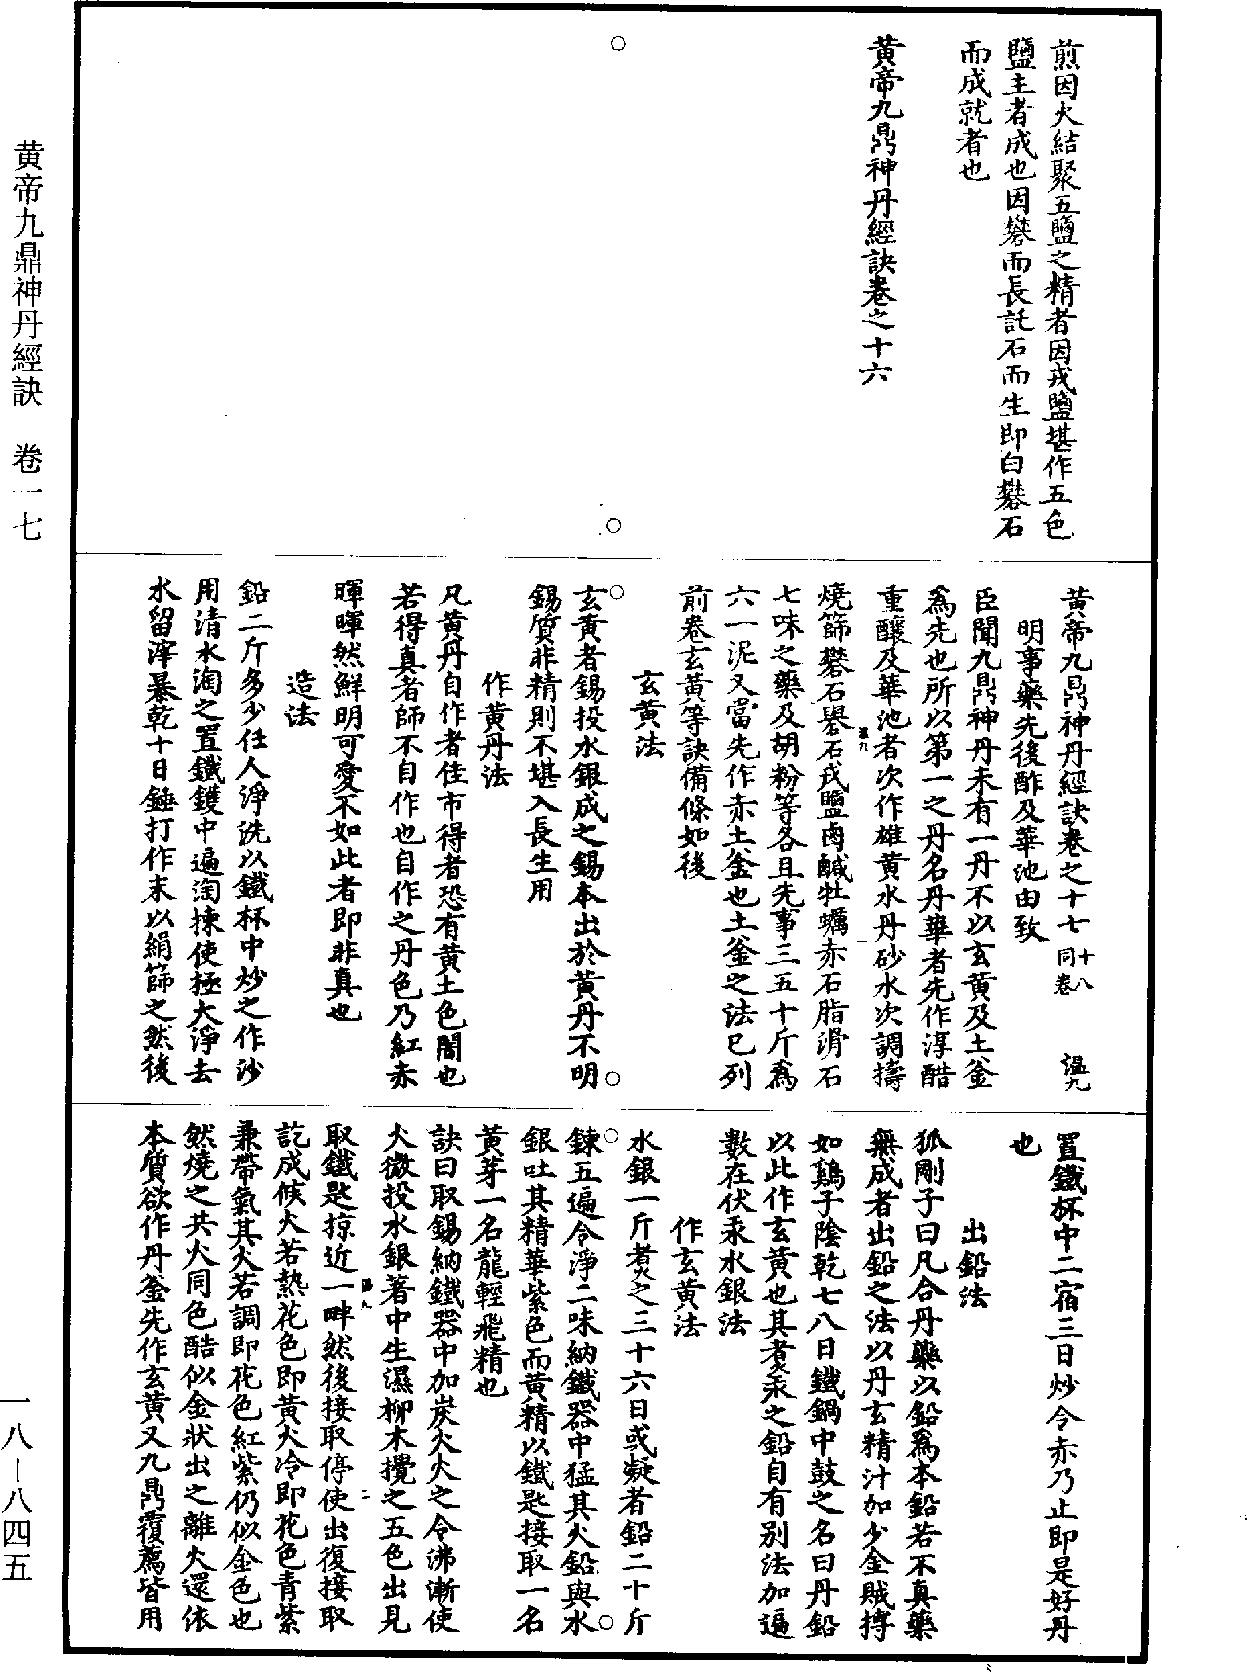 黃帝九鼎神丹經訣　卷一七
一八—八四五
煎因火結聚五鹽之精者因戎鹽堪作五色
鹽主者成也因礬而長託石而生即白礬石
而成就者也
黃帝九鼎神丹經訣卷之十六
黃帝九鼎神丹經訣卷之十七 十八同卷 溫九
明事藥先後酢及華池由致
臣聞九鼎神丹未有一丹不以玄黃及土釜
為先也所以第一之丹名丹華者先作淳醋
重釀及華池者次作雄黃水丹砂水次調擣
燒篩礬石礜石戎鹽鹵鹹牡蠣赤石脂滑石
七味之藥及胡粉等各且先事三五十斤為
六一泥又當先作赤土釜也土釜之法已列
前卷玄黃等訣備條如後
玄黃法
玄黃者錫投水銀成之錫本出於黃丹不明
錫質非精則不堪入長生用
作黃丹法
凡黃丹自作者佳市得者恐有黃土色闇也
若得真者師不自作也自作之丹色乃紅赤
暉暉然鮮明可愛不如此者即非真也
造法
鉛二斤多少任人淨洗以鐵杯中炒之作沙
用清水淘之置鐵鑊中遍淘揀使極大淨去
水留滓暴乾十日錘打作末以絹篩之然後
置鐵杯中二宿三日炒令赤乃止即是好丹
也
出鉛法
狐剛子曰凡合丹藥以鉛為本鉛若不真藥
無成者出鉛之法以丹玄精汁加少金賊摶
如鷄子陰乾七八日鐵鍋中鼓之名曰丹鉛
以此作玄黃也其煮汞之鉛自有別法加遍
數在伏汞水銀法
作玄黃法
水銀一斤煮之三十六日或凝者鉛二十斤
鍊五遍令淨二味納鐵器中猛其火鉛與水
銀吐其精華紫色而黃精以鐵匙接取一名
黃芽一名龍輕飛精也
訣曰取錫納鐵器中加炭火火之令沸漸使
火微投水銀著中生濕柳木攪之五色出見
取鐵匙掠近一畔然後接取停使出復接取
訖成候火若熱花色即黃火冷即花色青紫
兼帶氣其火若調即花色紅紫仍似金色也
然燒之共火同色酷似金狀出之離火還依
本質欲作丹釜先作玄黃又九鼎覆薦皆用